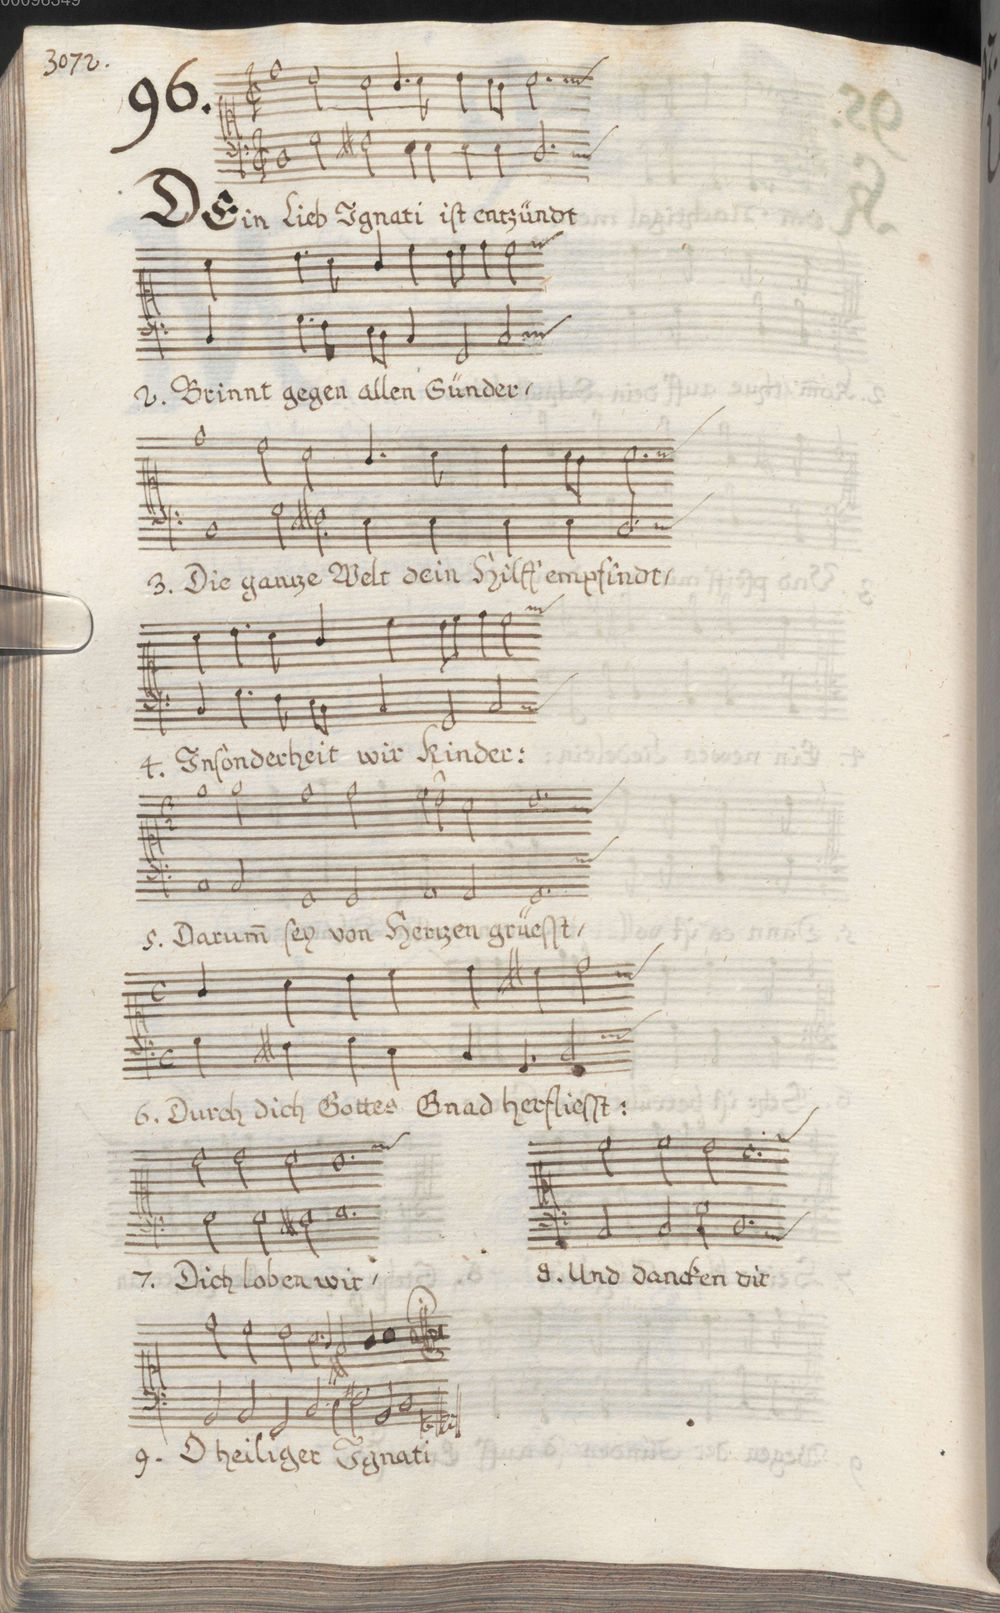 3072.
96.
DEin Lieb Ignati ist entzündt
2. Brinnt gegen allen Sünder/
3. Die gantze Welt dein Hilff empfindt/
4. Insonderheit wir Kinder:
5. Darum̄ sey von Hertzen grüesst/
6. Durch dich Gottes Gnad herfliesst:
7. Dich loben wir/ 8. Und dancken dir
9. O heiliger Ignati